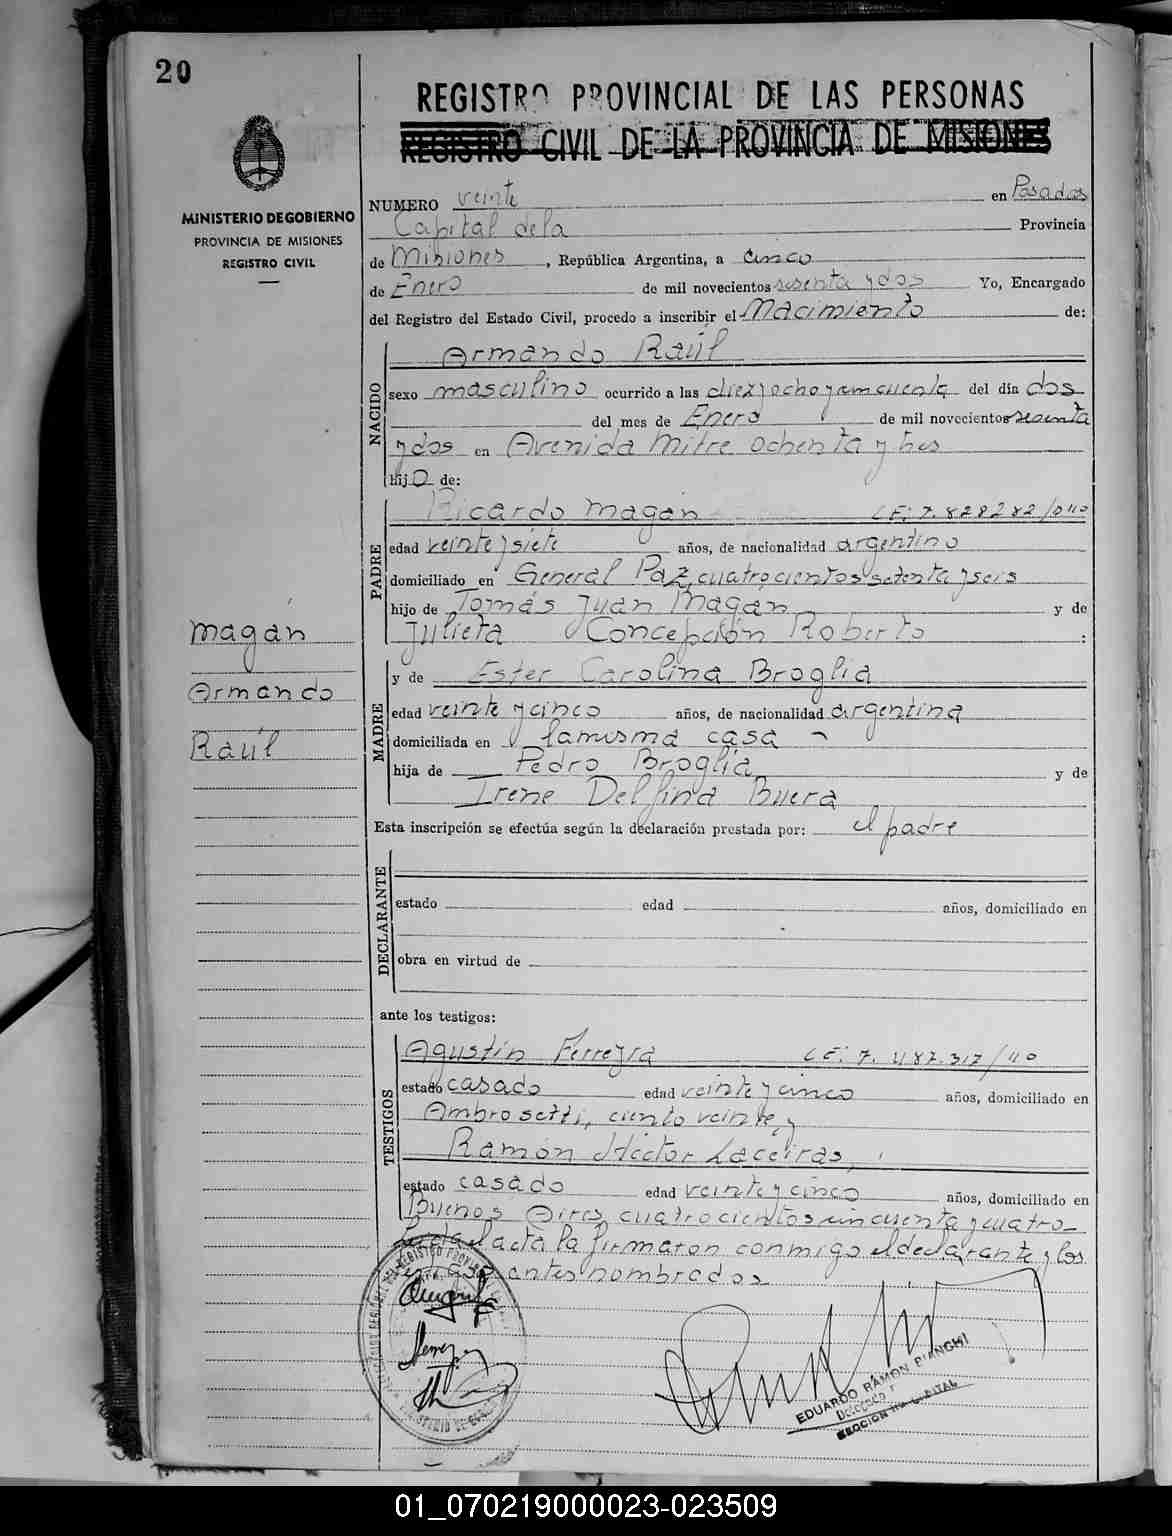 20
MINISTERIO DE GOBIERNO
PROVINCIA DE MISIONES
REGISTRO CIVIL
Magán
Armando
Raúl
REGISTRO PROVINCIAL DE LAS PERSONAS
REGISTRO CIVIL DE LA PROVINCIA DE MISIONES
NUMERO veinte en Posadas
Capital de la Provincia
de Misiones, República Argentina, a cinco
de Enero de mil novecientos sesenta y dos Yo, Encargado
del Registro del Estado Civil, procedo a inscribir el Nacimiento de:
NACIDO
Armando Raúl
sexo masculino ocurrido a las diez y ocho y cincuenta del día dos
del mes de Enero de mil novecientos sesenta
y dos en Avenida Mitre ochenta y tres
hijo de:
PADRE
Ricardo Magán
edad veinte y siete años, de nacionalidad argentino
domiciliado en General Paz, cuatrocientos setenta y seis
hijo de Tomás Juan Magán y de
Julieta Concepción Roberto :
MADRE
y de Ester Carolina Broglia
edad veinte y cinco años, de nacionalidad argentina
domiciliada en la misma casa -
hija de Pedro Broglia y de
Irene Delfina Buera
Esta inscripción se efectúa según la declaración prestada por: el padre
DECLARANTE
estado edad años, domiciliado en
obra en virtud de
ante los testigos:
TESTIGOS
Agustín Ferreyra
estado casado edad veinte y cinco años, domiciliado en
Ambrosetti, ciento veinte, y
Ramón Héctor Laceiras,
estado casado edad veinte y cinco años, domiciliado en
Buenos Aires cuatrocientos cincuenta y cuatro-
Leída el acta la firmaron conmigo el declarante y los
antes nombrados
EDUARDO RAMON BIANCHI
DELEGADO
SECCION CAPITAL
01_070219000023-023509